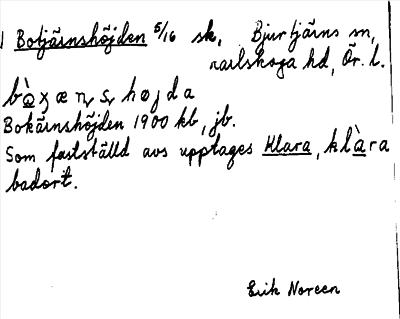 1 Botjärnshöjden 5/16 sk, Bjurtjärns sn,
Karlskoga hd, Ör. l.
bòʒæɳʂhøjda
Bokärnshöjden 1900 kb, jb.
Som fastställd avs upptages Klara, klàra
badort.
Erik Noreen